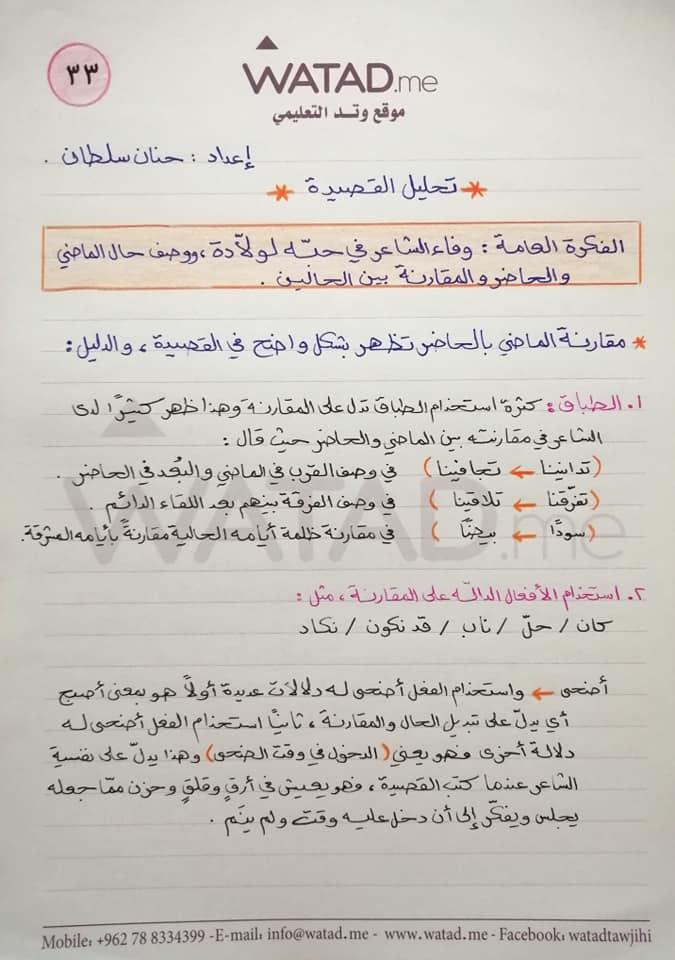 ٣٣
WATAD.me
موقع وتد التعليمي
إعداد : حنان سلطان .
* تحليل القصيدة *
الفكرة العامة : وفاء الشاعر في حبّه لولّادة ، ووصف حال الماضي
والحاضر والمقارنة بين الحالين .
* مقارنة الماضي بالحاضر تظهر بشكل واضح في القصيدة ، والدليل :
١. الطباق : كثرة استخدام الطباق تدل على المقارنة وهذا ظهر كثيرًا لدى
الشاعر في مقارنته بين الماضي والحاضر حيث قال :
(تدانينا ← تجافينا) في وصف القرب في الماضي والبُعد في الحاضر .
(تفرّقنا ← تلاقينا) في وصف الفرقة بينهم بعد اللقاء الدائم .
(سودًا ← بيضًا) في مقارنة ظلمة أيامه الحالية مقارنةً بأيامه المشرقة.
٢. استخدام الأفعال الدالّة على المقارنة ، مثل :
كان / حلّ / ناب / قد نكون / نكاد
أضحى ← واستخدام الفعل أضحى له دلالات عديدة أولاً هو بمعنى أصبح
أي يدلّ على تبديل الحال والمقارنة ، ثانيًا استخدام الفعل أضحى له
دلالة أخرى فهو يعني (الدخول في وقت الضحى) وهذا يدلّ على نفسية
الشاعر عندما كتب القصيدة ، فهو يعيش في أرقٍ وقلقٍ وحزن ممّا جعله
يجلس ويفكّر إلى أن دخل عليه وقت ولم ينَم .
WATAD.me
Mobile: +962 78 8334399 -E-mail: info@watad.me - www.watad.me - Facebook: watadtawjihi